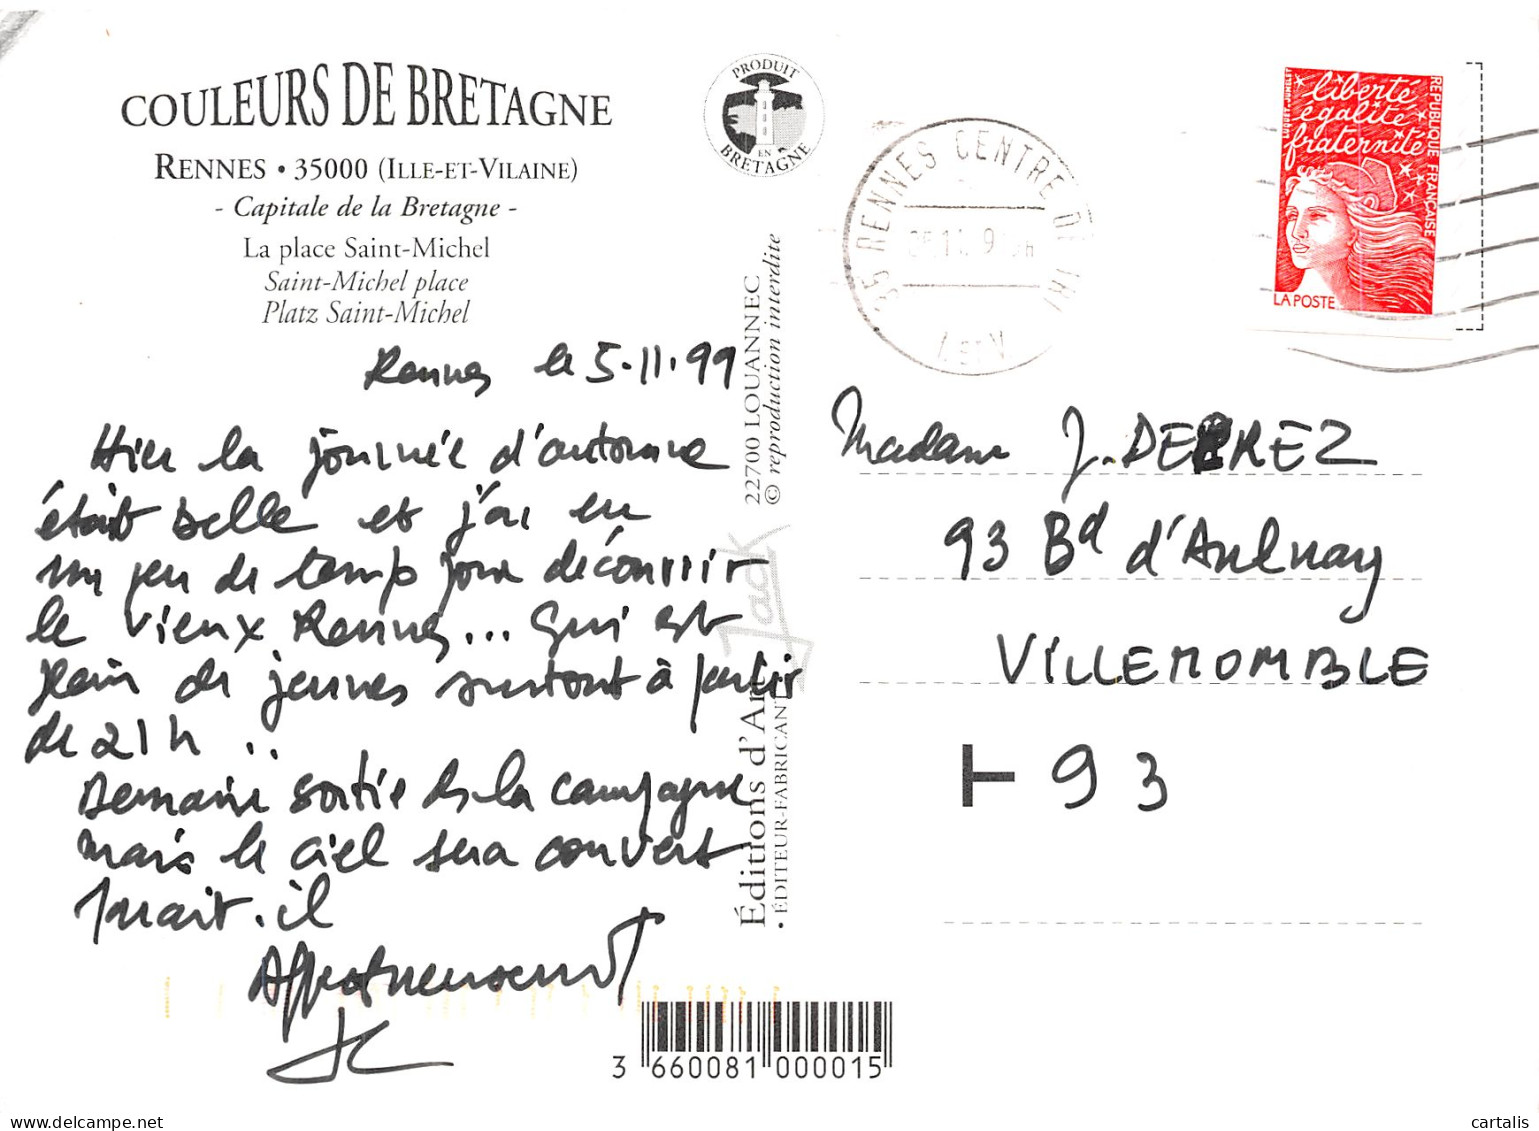 COULEURS DE BRETAGNE
RENNES • 35000 (ILLE-ET-VILAINE)
- Capitale de la Bretagne -
La place Saint-Michel
Saint-Michel place
Platz Saint-Michel
PRODUIT
EN
BRETAGNE
Rennes le 5.11.99
Hier la journée d'automne
était belle et j'ai eu
un peu de temps pour découvrir
le vieux Rennes... qui est
plein de jeunes surtout à partir
de 21h ..
Demain sortie ds la campagne
mais le ciel sera couvert
parait-il
Affectueusement
JC
22700 LOUANNEC
© reproduction interdite
Jack
Éditions d'Art
• ÉDITEUR-FABRICANT
3 660081 000015
35 RENNES CENTRE DE TRI
liberté
égalité
fraternité
RÉPUBLIQUE FRANÇAISE
LA POSTE
Madame J. DEBREZ
93 Bd d'Aulnay
VILLEMOMBLE
T 93
delcampe.net
cartalis